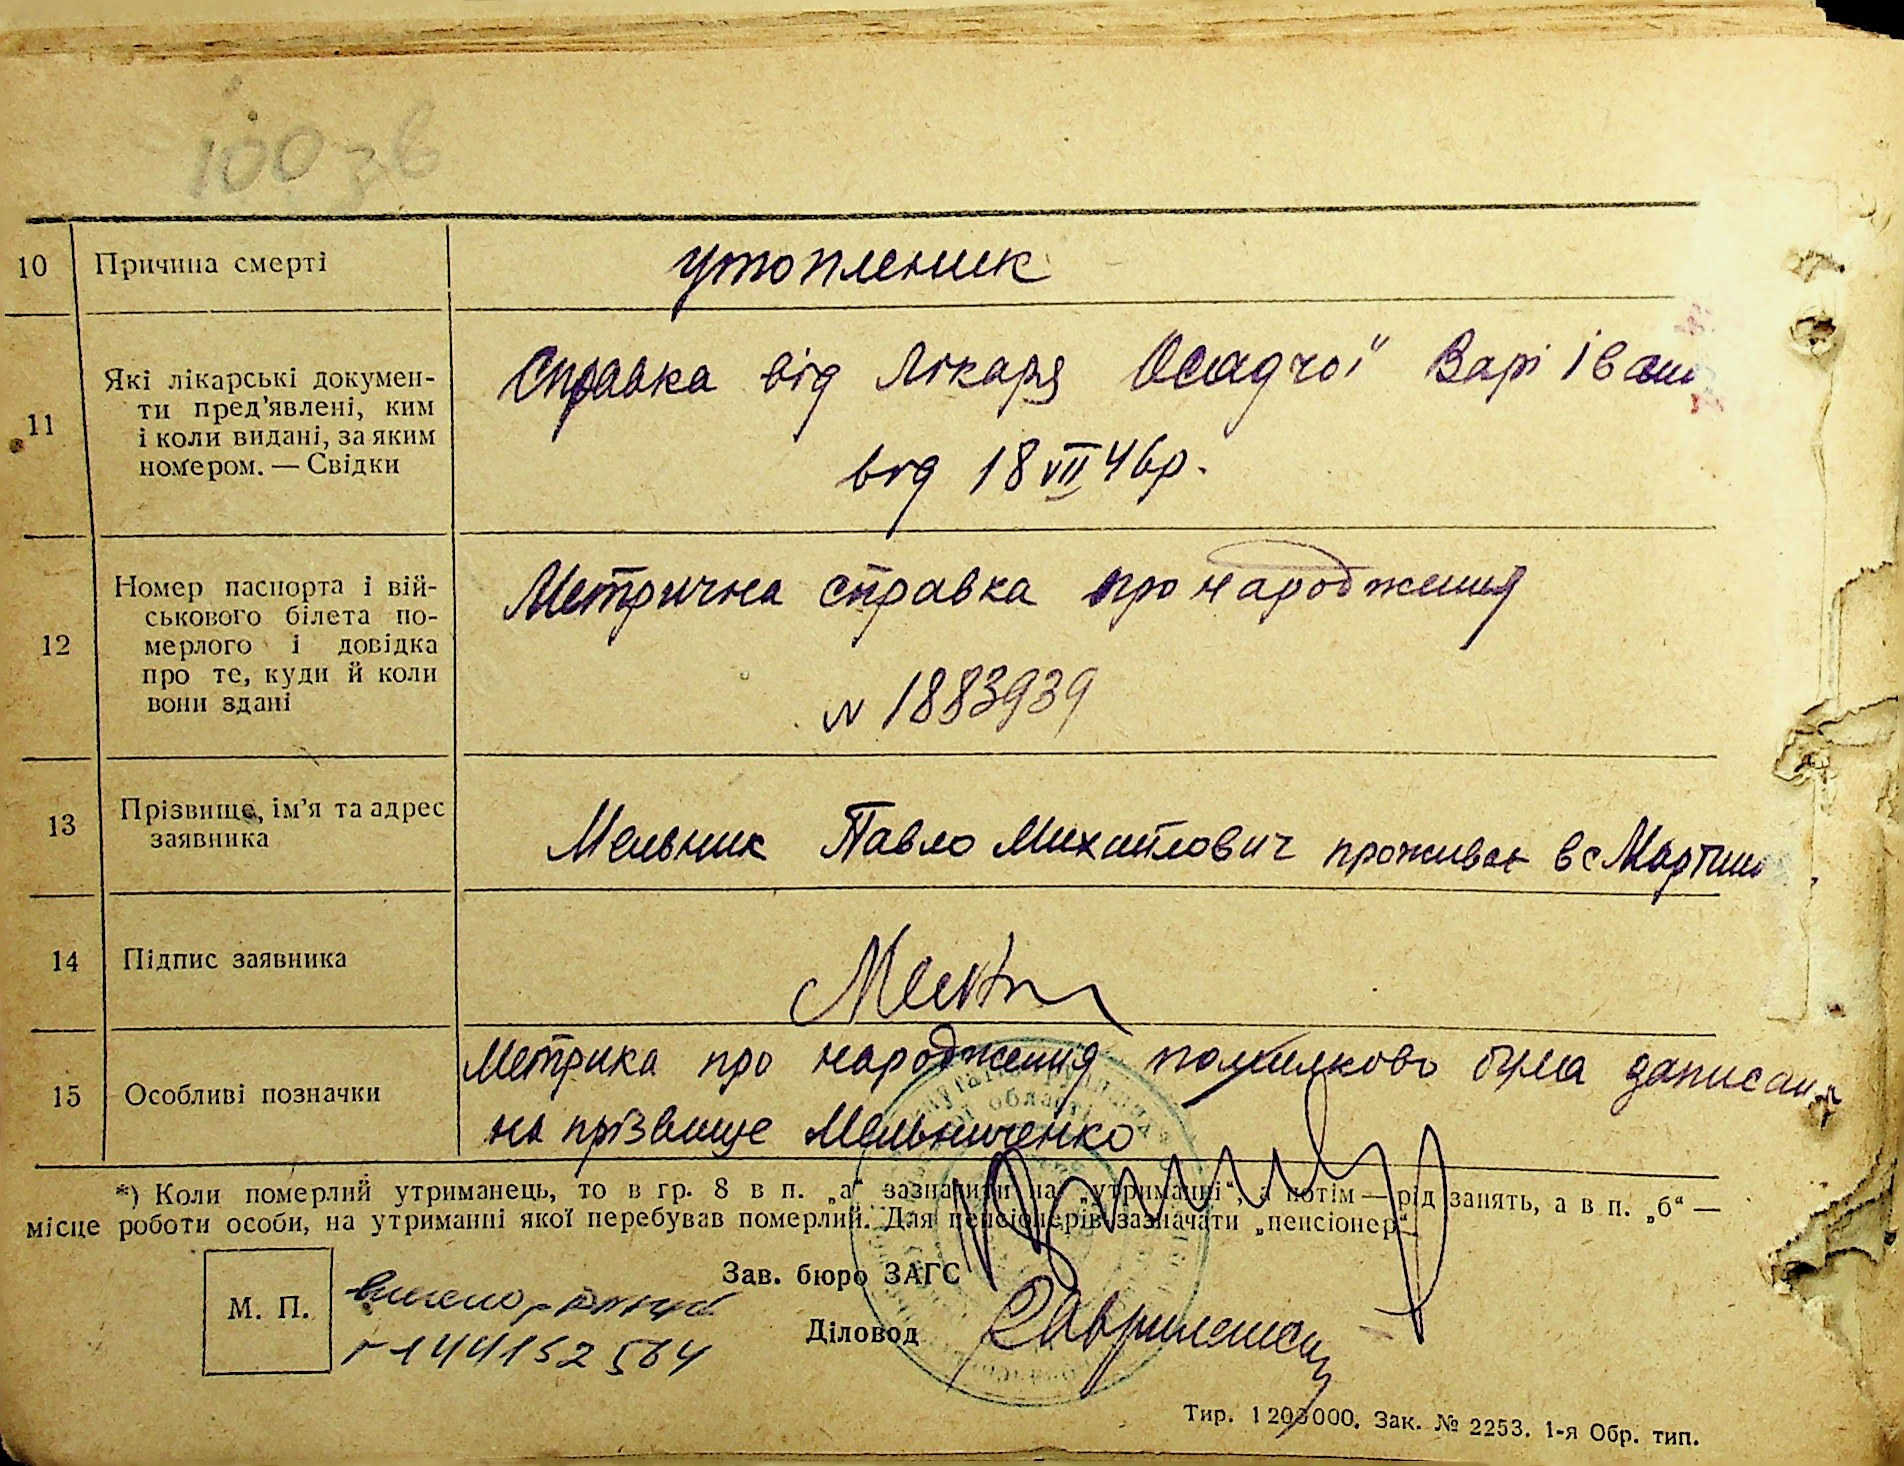 100 зв
10 Причина смерті утопленик
11 Які лікарські докумен-
ти пред’явлені, ким
і коли видані, за яким
номером. — Свідки
Справка від лікаря Осадчої Варі Іван
від 18 VII 46р.
12 Номер паспорта і вій-
ськового білета по-
мерлого і довідка
про те, куди й коли
вони здані
Метрична справка про народження
N 1883939
13 Прізвище, ім’я та адрес
заявника
Мельник Павло Михайлович проживає в с Мартин
14 Підпис заявника
15 Особливі позначки
Метрика про народження помилково була записана
на прізвище Мельниченко
*) Коли померлий утриманець, то в гр. 8 в п. „а“ зазначити на „утриманні“, а потім — рід занять, а в п. „б“ —
місце роботи особи, на утриманні якої перебував померлий. Для пенсіонерів зазначати „пенсіонер“.
Зав. бюро ЗАГС
М. П.
Діловод
144152564
Тир. 1200000. Зак. № 2253. 1-я Обр. тип.